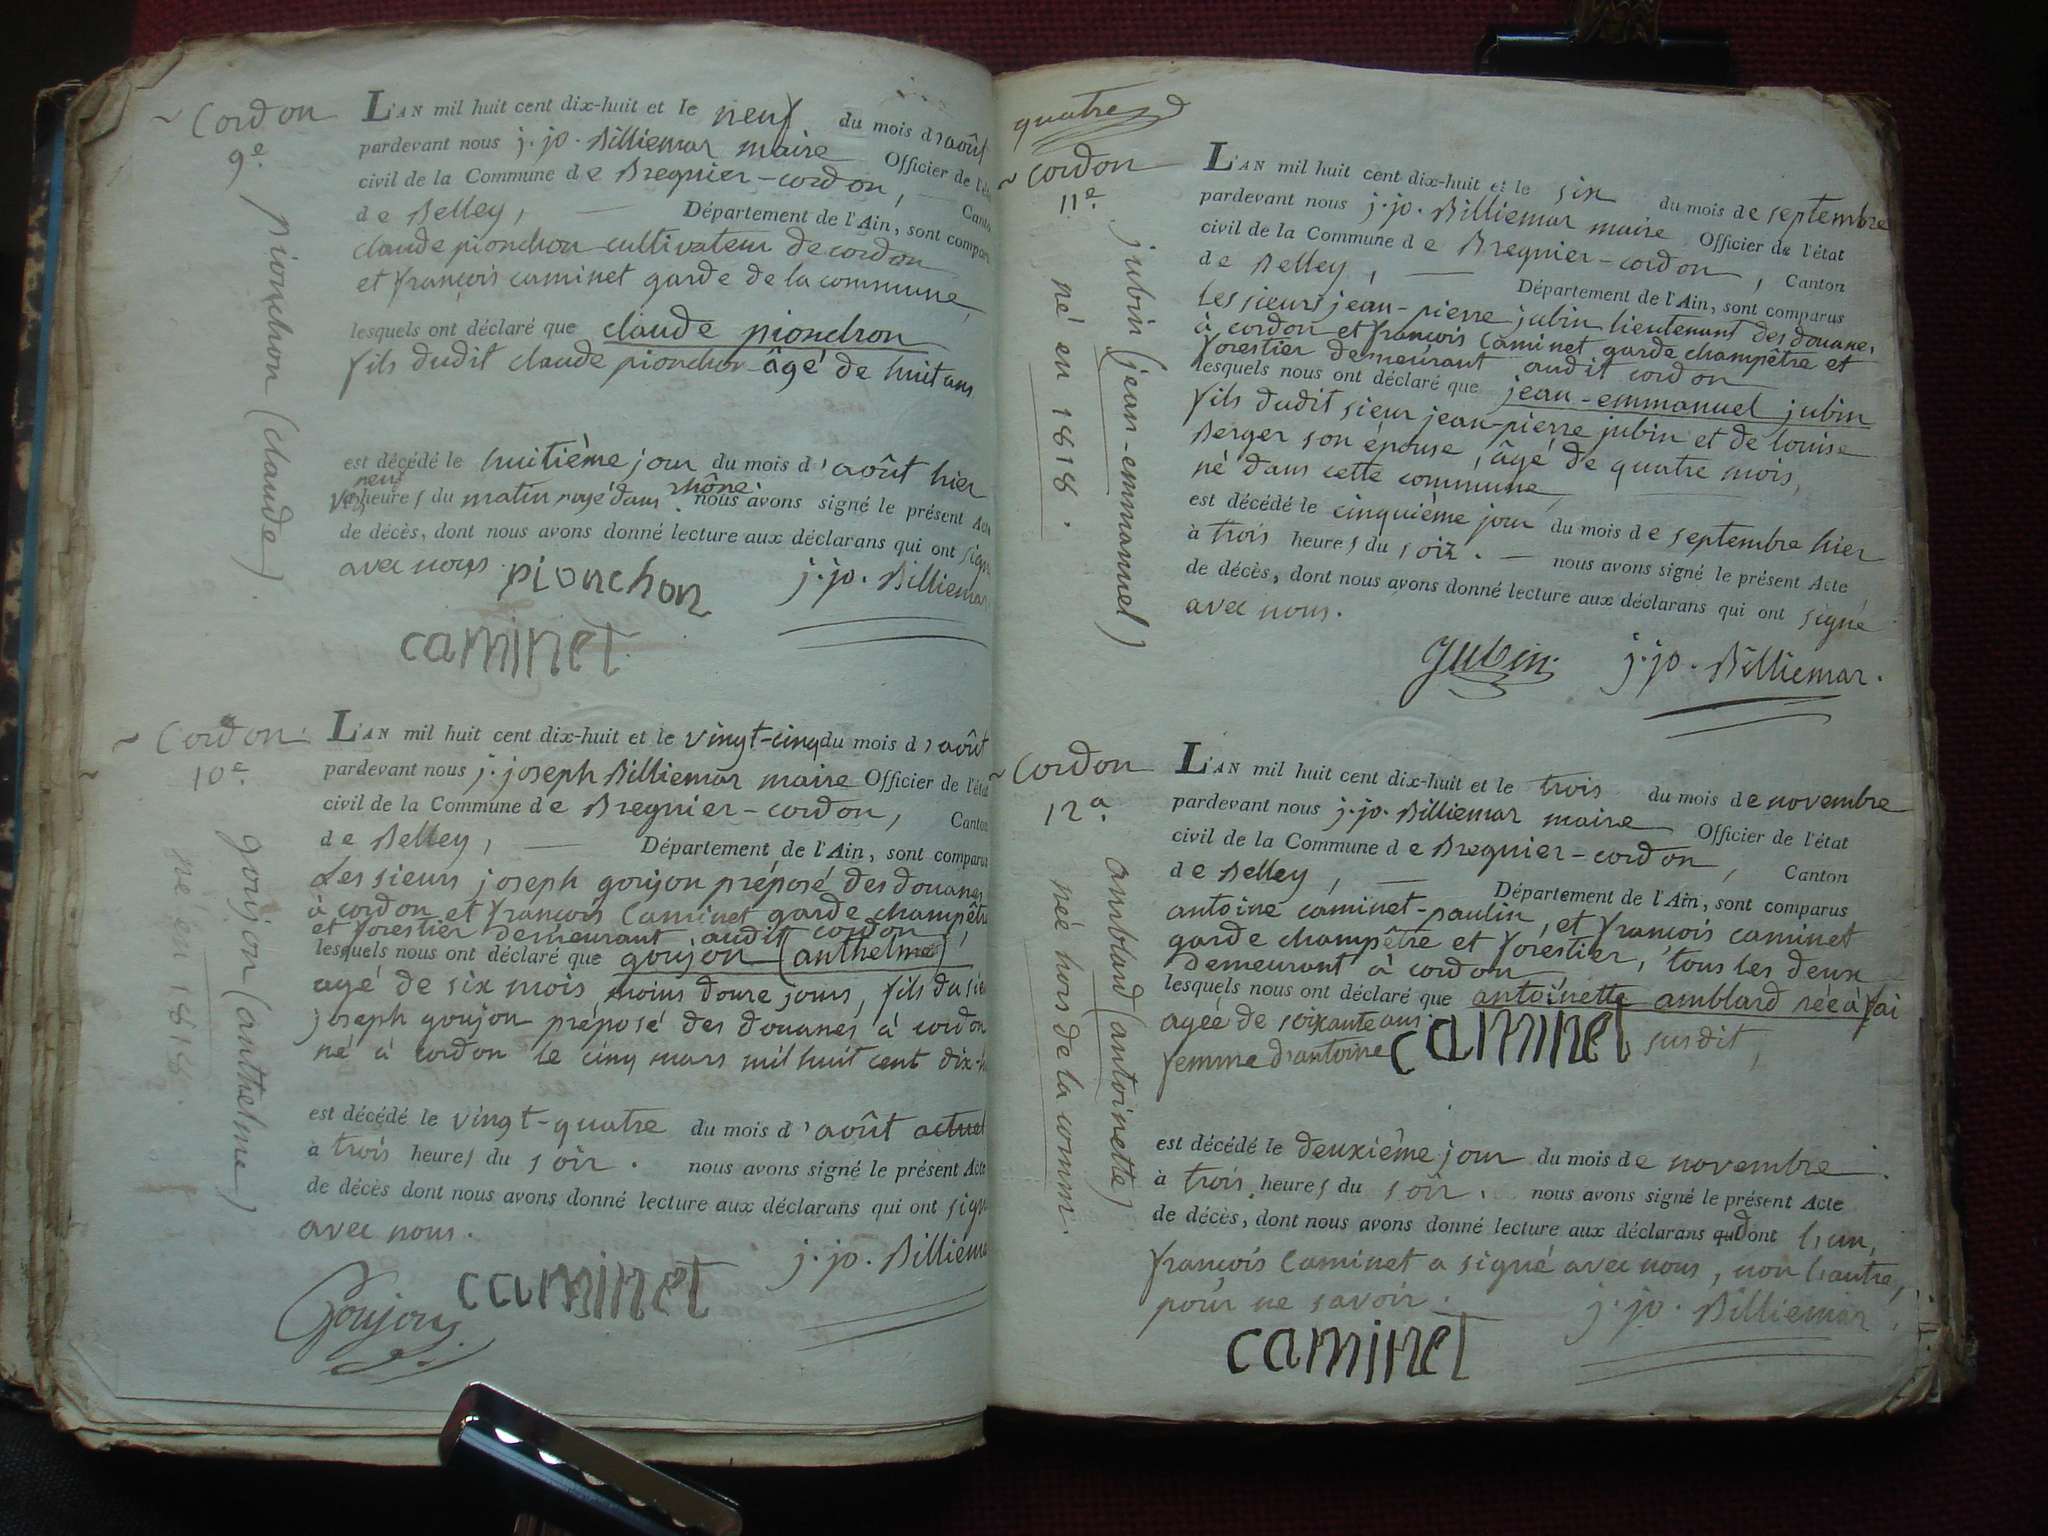 ~ Cordon
9e.
pionchon (claude).
L'AN mil huit cent dix-huit et le neuf du mois d'août
pardevant nous j. jo. Billiemar maire Officier de l'
civil de la Commune de Bregnier-cordon, Canto
de Belley, — Département de l'Ain, sont compar
claude pionchon cultivateur de cordon
et françois caminet garde de la commune,
lesquels ont déclaré que claude pionchon
fils dudit claude pionchon âgé de huit ans
est décédé le huitième jour du mois d'août hier
neuf
heures du matin noyé dans rhône. nous avons signé le présent Acte
de décès, dont nous avons donné lecture aux déclarans qui ont sign
avec nous. pionchon j. jo. Billiemar
caminet
~ Cordon
10e.
goujon (anthelme)
né en 1818.
L'AN mil huit cent dix-huit et le vingt-cinq du mois d'août
pardevant nous j. joseph Billiemar maire Officier de l'état
civil de la Commune de Bregnier-cordon, Canton
de Belley, — Département de l'Ain, sont comparus
Les sieurs joseph goujon préposé des douanes
à cordon et françois Caminet garde champêtre
et forestier demeurant audit cordon,
lesquels nous ont déclaré que goujon (anthelme)
agé de six mois moins douze jours, fils du sie
joseph goujon préposé des douanes à cordon
né à cordon le cinq mars mil huit cent dix-h
est décédé le vingt-quatre du mois d'août actuel
à trois heures du soir. nous avons signé le présent Acte
de décès dont nous avons donné lecture aux déclarans qui ont sign
avec nous.
j. jo. Billiema
Goujon caminet
quatre
~ Cordon
11e.
jubin (jean-emmanuel)
né en 1818.
L'AN mil huit cent dix-huit et le six du mois de septembre
pardevant nous j. jo. Billiemar maire Officier de l'état
civil de la Commune de Bregnier-cordon, Canton
de Belley, — Département de l'Ain, sont comparus
les sieurs jean-pierre jubin lieutenant des douanes
à cordon et françois Caminet garde champêtre et
forestier demeurant audit cordon
lesquels nous ont déclaré que jean-emmanuel jubin
fils dudit sieur jean-pierre jubin et de louise
Berger son épouse, âgé de quatre mois,
né dans cette commune,
est décédé le cinquième jour du mois de septembre hier
à trois heures du soir. — nous avons signé le présent Acte
de décès, dont nous avons donné lecture aux déclarans qui ont signé
avec nous.
Jubin. j. jo. Billiemar.
~ Cordon
12e.
amblard (antoinette)
née hors de la comm.
L'AN mil huit cent dix-huit et le trois du mois de novembre
pardevant nous j. jo. Billiemar maire Officier de l'état
civil de la Commune de Bregnier-cordon, Canton
de Belley, — Département de l'Ain, sont comparus
antoine caminet-paulin, et françois caminet
garde champêtre et forestier, tous les deux
demeurant à cordon
lesquels nous ont déclaré que antoinette amblard née à
agée de soixante ans.
femme d'antoine caminet susdit,
est décédé le deuxième jour du mois de novembre
à trois heures du soir. nous avons signé le présent Acte
de décès, dont nous avons donné lecture aux déclarans dont l'un,
françois Caminet a signé avec nous, non l'autre,
pour ne savoir. j. jo. Billiemar.
caminet